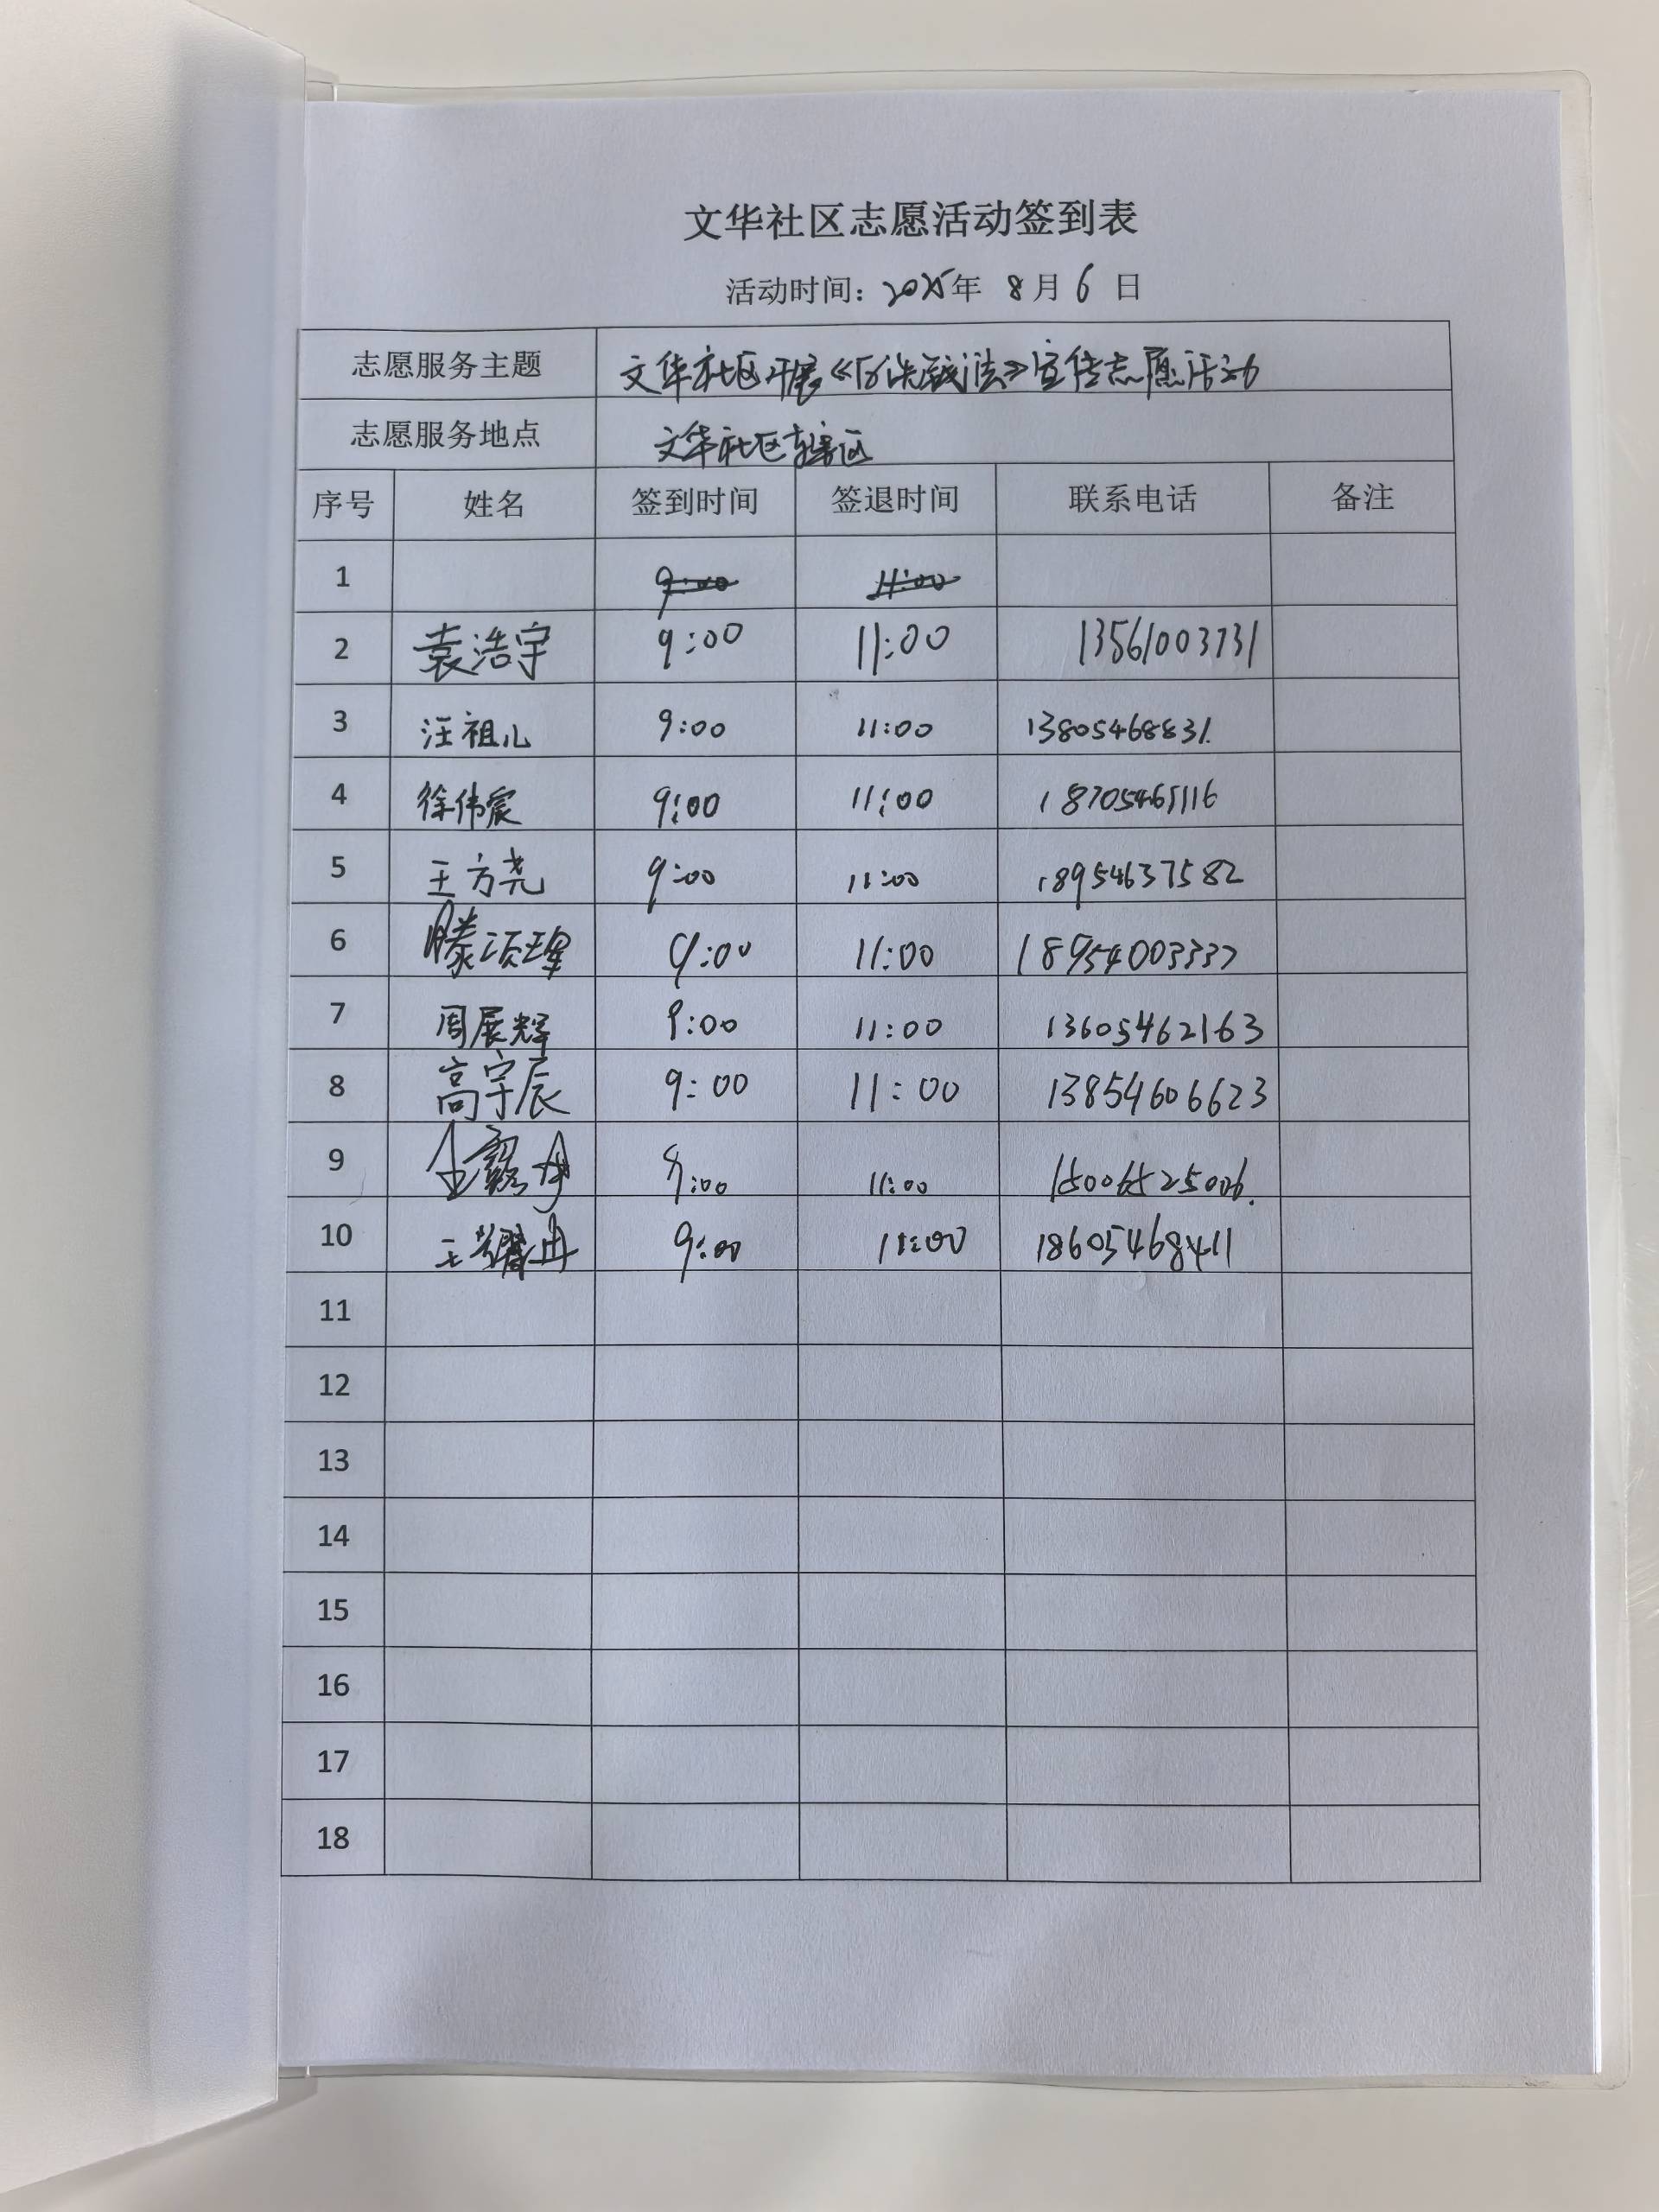 文华社区志愿活动签到表
活动时间：2025年 8月6日
志愿服务主题 文华社区开展《反洗钱法》宣传志愿活动
志愿服务地点 文华社区辖区
序号 姓名 签到时间 签退时间 联系电话 备注
1 9:00 11:00
2 袁浩宇 9:00 11:00 13561003731
3 汪祖儿 9:00 11:00 13805468831.
4 徐伟宸 9:00 11:00
5 王方尧 9:00 11:00 18954637582
6 滕 9:00 11:00
7 周展辉 9:00 11:00 13605462163
8 高宇辰 9:00 11:00 13854606623
9 9:00 11:00
10 王 冉 9:00 11:00 18605468411
11
12
13
14
15
16
17
18